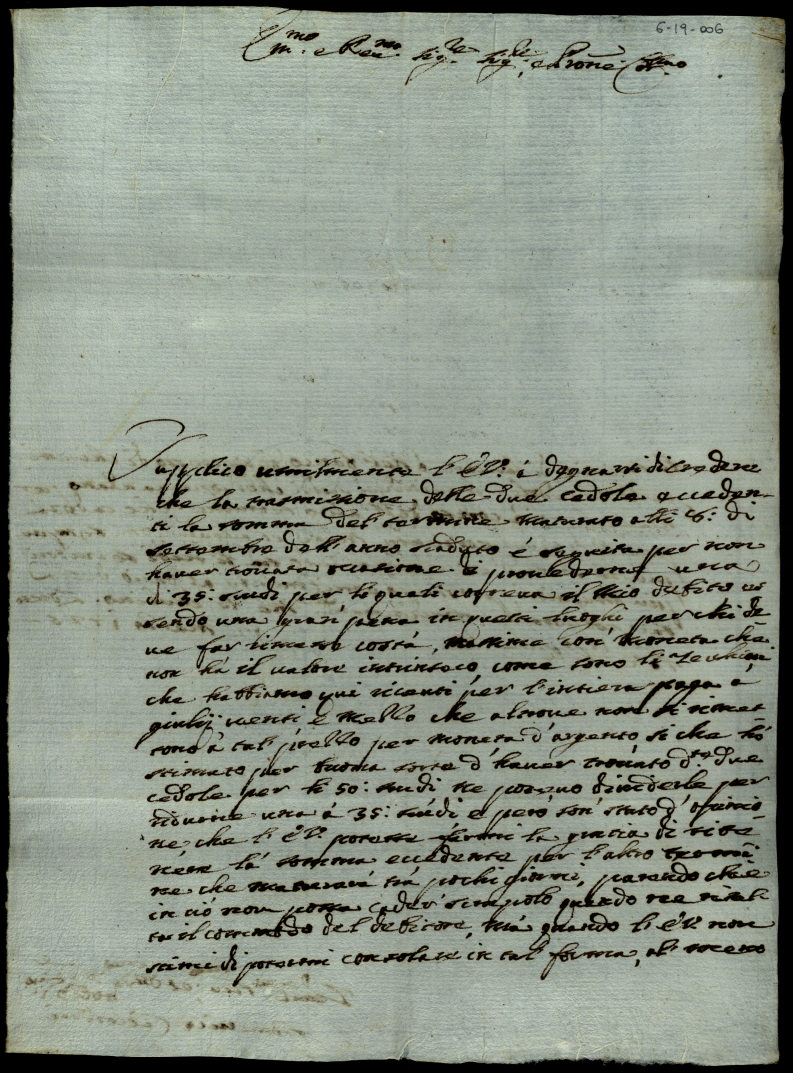 6-19-006
Em.mo e Rev.mo Sig.re Sig.re, e Prone Col.mo
Supplico umilmente l'E.V. à degnarsi di credere
che la trasmissione delle due cedole ecceden-
ti la somma del termine maturato alli 6: di
Settembre dell'anno scaduto é seguita per non
haver trovata occasione di provederne una
di 35: scudi per li quali correva il mio debito es
sendo una gran pena in questi luoghi per chi de-
ve far rimesse costà, massime con moneta che
non hà il valore intrinseco, come sono li Zecchini
che habbiamo qui ricevuti per l'intiera paga a
giulij venti e mezzo che altrove non si rimet
tono à tal prezzo per moneta d'argento si che hò
stimato per buona sorte d'haver trovato d.te due
cedole per li 50: scudi ne potevo dividerle per
ridurne una à 35: scudi e però son stato d'opinio
ne che l'E.V. potesse farmi la gratia di rite-
nere la somma eccedente per l'altro termi
ne che maturarà frà pochi giorni, parendo che
in ciò non possa cader scrupolo quando ne risul
ta il commodo del debitore, mà quando l'E.V. non
stimi di potermi consolare in tal forma, al meno